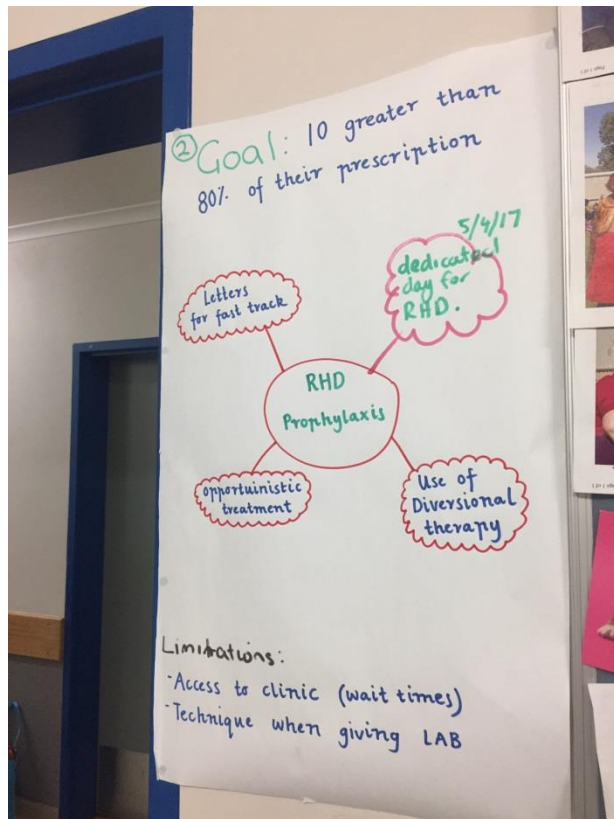 ② Goal: 10 greater than
80% of their prescription
5/4/17
Letters
for fast track
dedicated
day for
RHD.
RHD
Prophylaxis
opportuinistic
treatment
Use of
Diversional
therapy
Limitations:
-Access to clinic (wait times)
-Technique when giving LAB